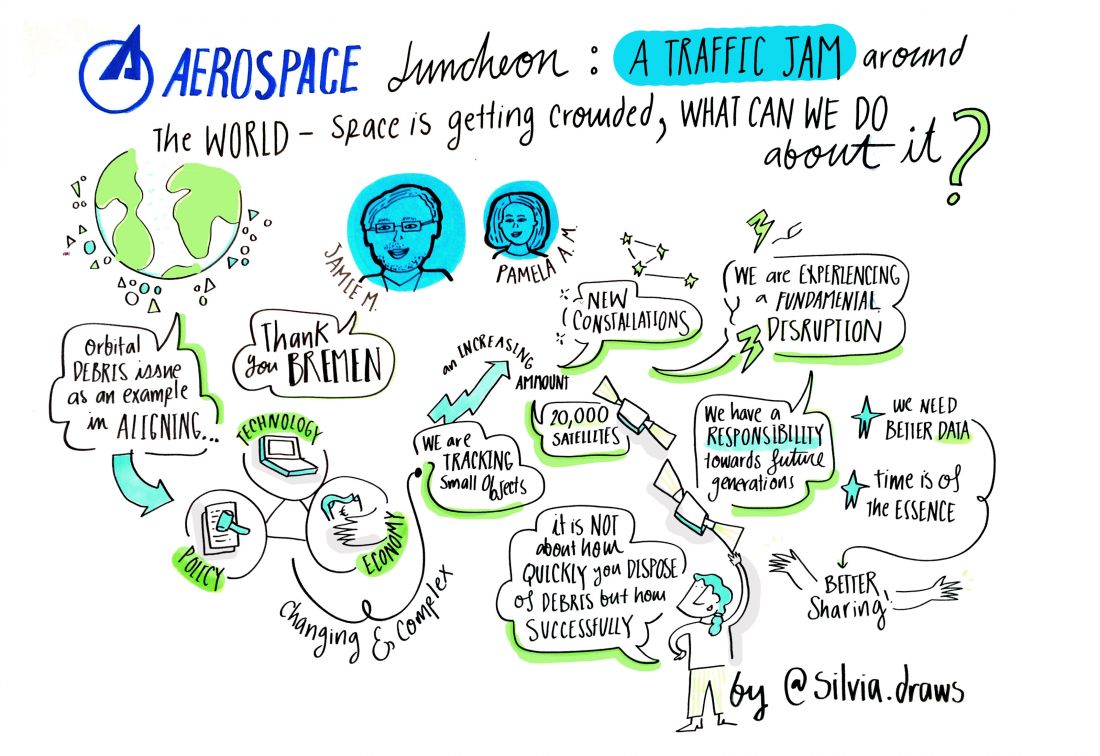 AEROSPACE Luncheon : A TRAFFIC JAM around
THE WORLD – Space is getting crowded, WHAT CAN WE DO
about it ?
JAMIE M.
PAMELA A.M.
Orbital
DEBRIS issue
as an example
in ALIGNING...
Thank
you BREMEN
TECHNOLOGY
POLICY
ECONOMY
Changing & Complex
WE are
TRACKING
Small Objects
an INCREASING
AMMOUNT
20,000
SATELLITES
NEW
CONSTALLATIONS
WE are EXPERIENCING
a FUNDAMENTAL
DISRUPTION
We have a
RESPONSIBILITY
towards future
generations
WE NEED
BETTER DATA
time is of
THE ESSENCE
BETTER
Sharing!
it is NOT
about how
QUICKLY you DISPOSE
of DEBRIS but how
SUCCESSFULLY
by @silvia.draws